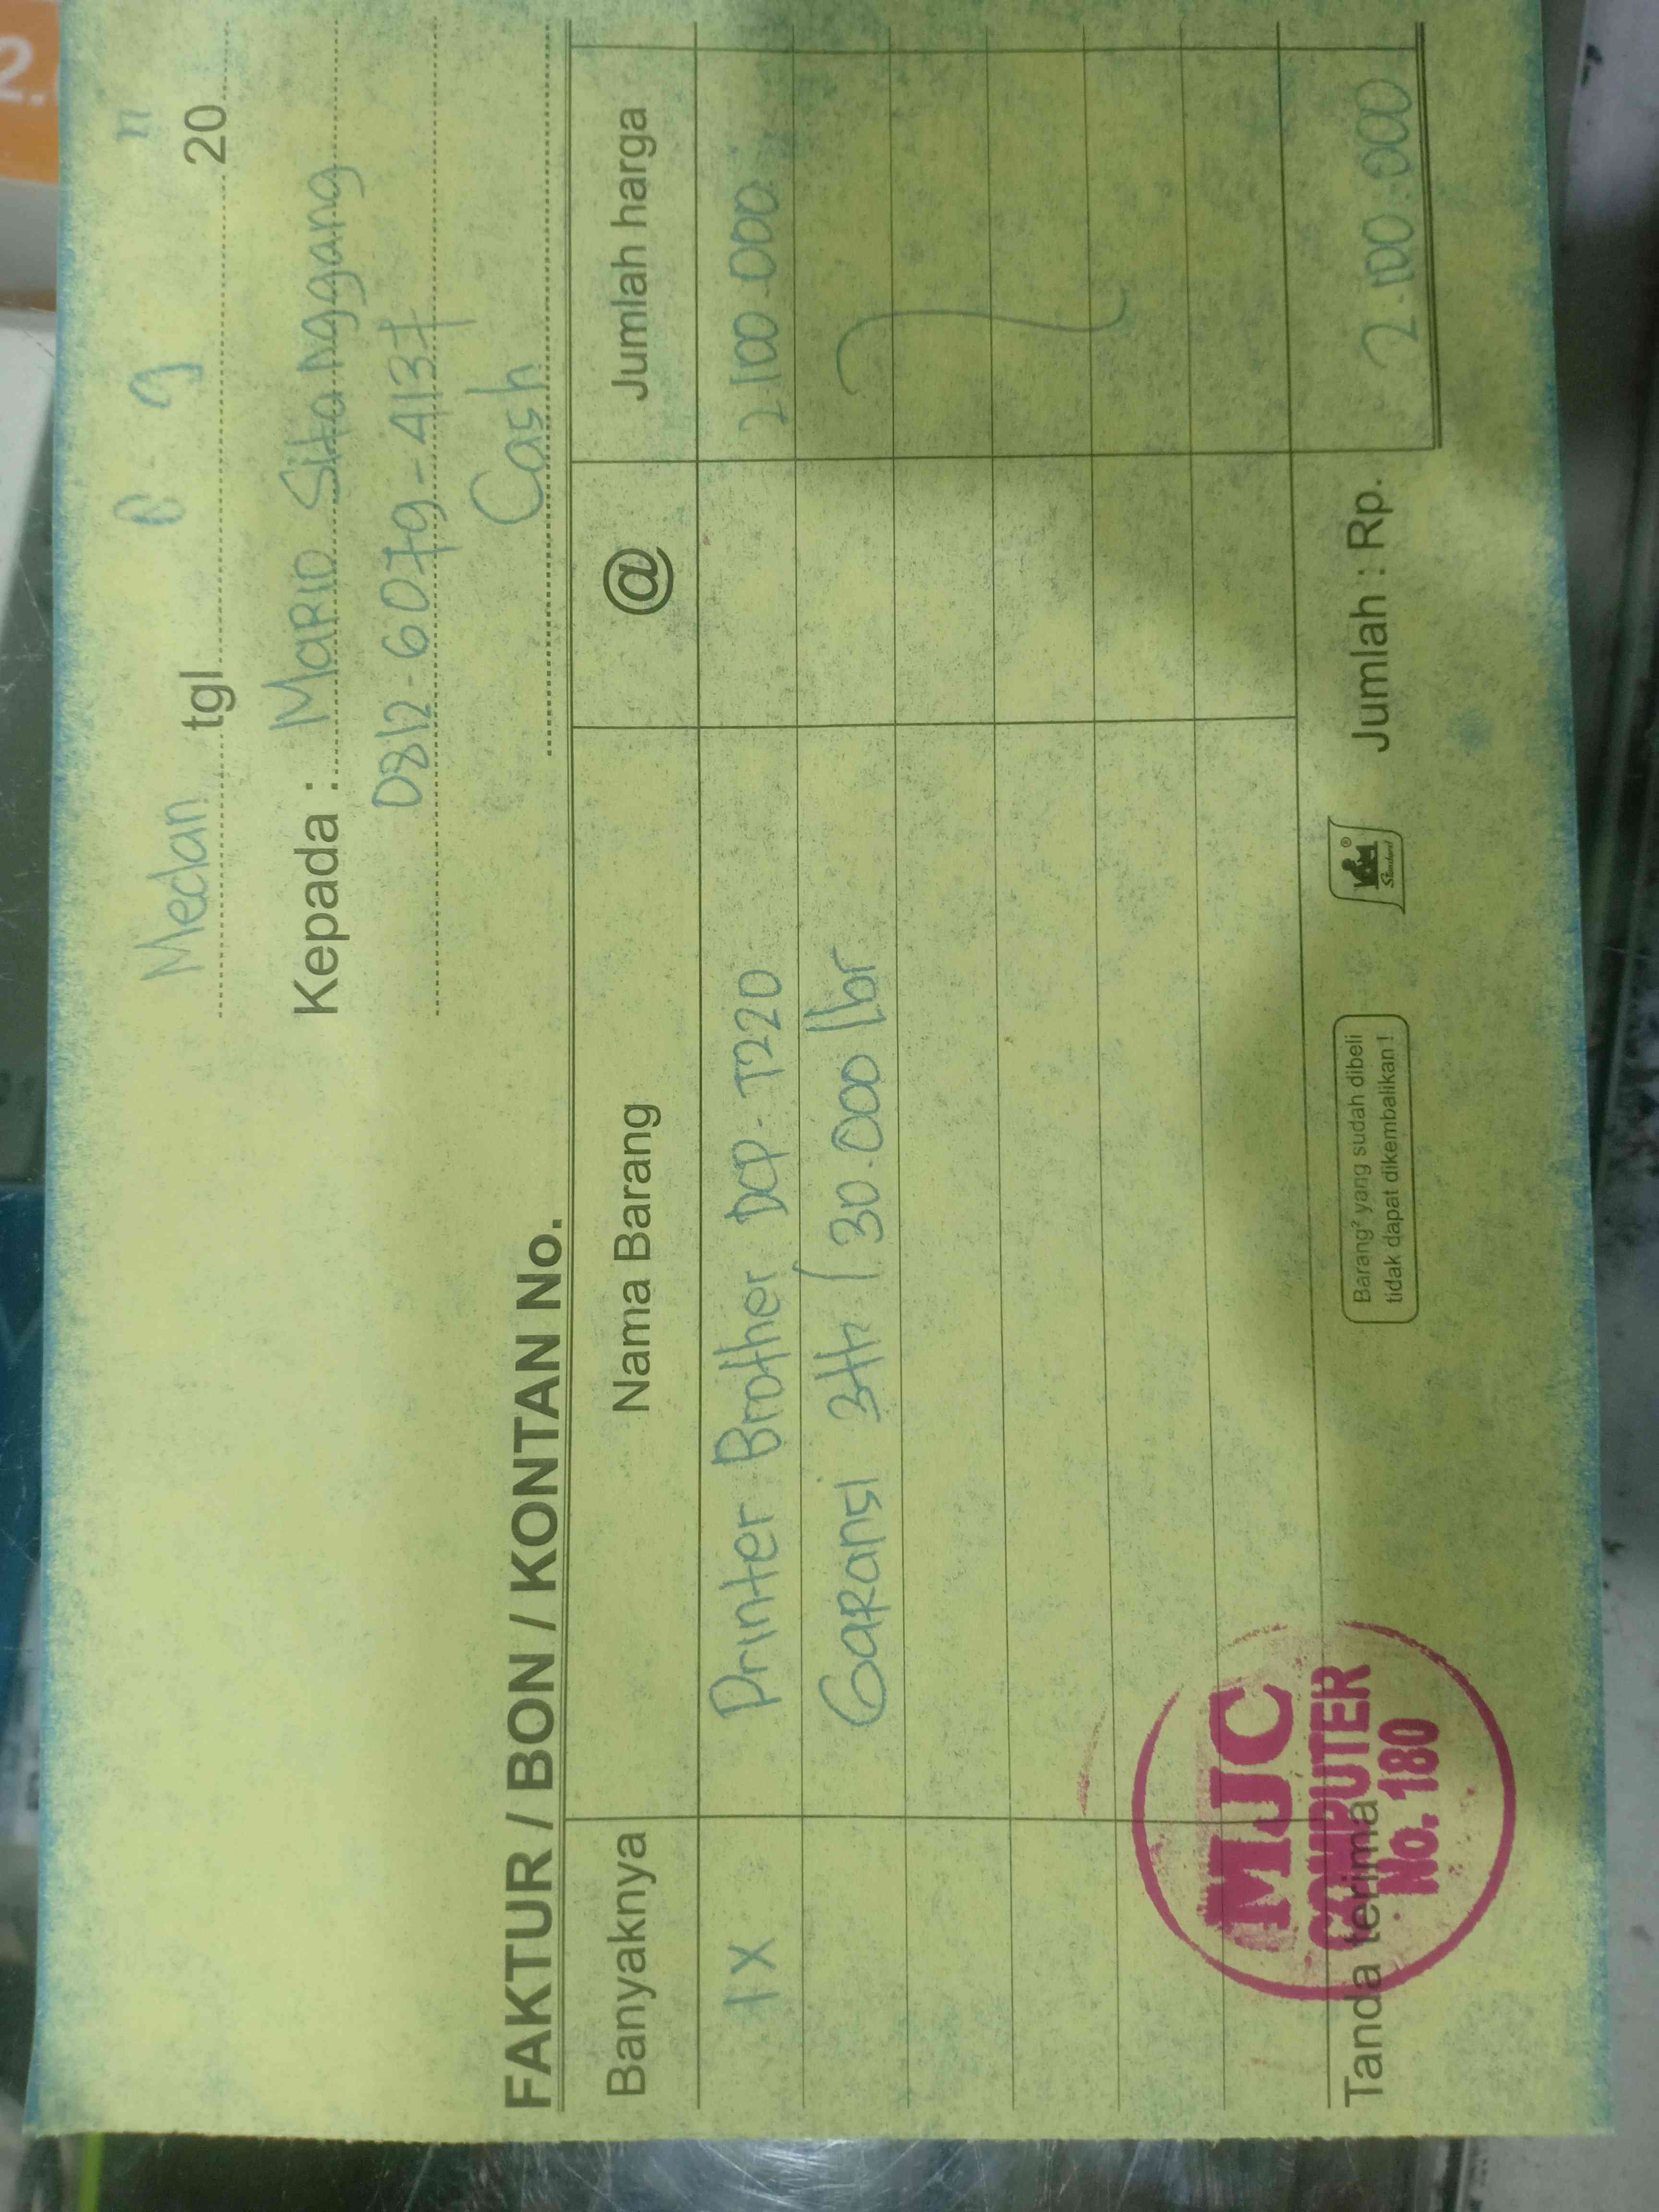 Medan tgl 20
Kepada : MARIO Sihanggang
Cash
FAKTUR / BON / KONTAN No.
Banyaknya Nama Barang @ Jumlah harga
1 X Printer Brother DCP-T220 2.100.000
GARansi 3th / 30.000 lbr
Tanda terima
MJC
KOMPUTER
No. 180
Barang² yang sudah dibeli
tidak dapat dikembalikan !
Standard
Jumlah : Rp. 2.100.000